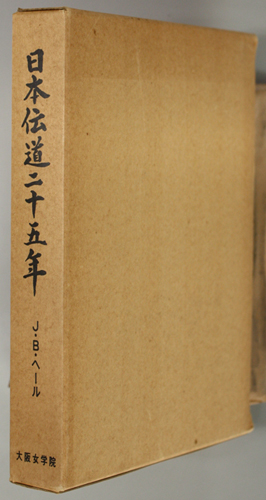 日本伝道二十五年
J・B・ヘール
大阪女学院